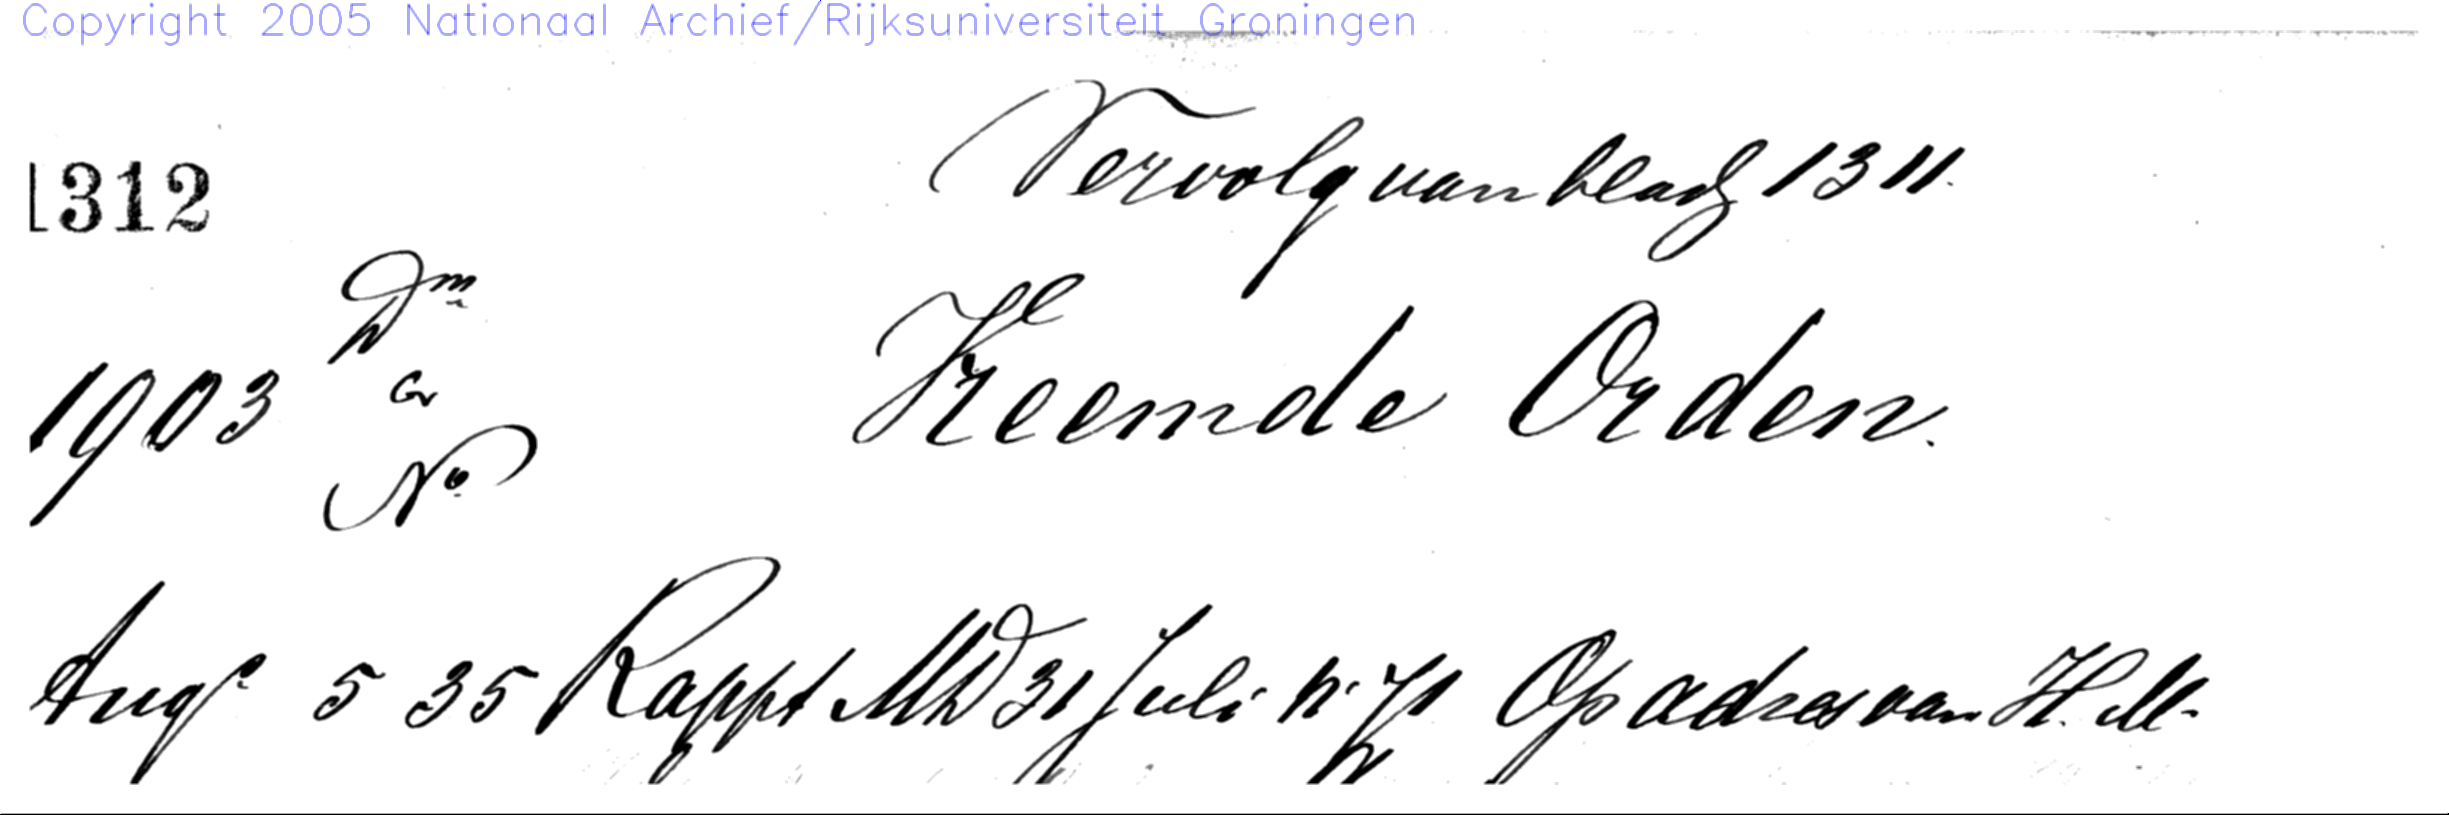 Copyright 2005 Nationaal Archief/Rijksuniversiteit Groningen
Vervolg van bladz 1311.
1312
Dm
1903 en Vreemde Orden.
No
Augs 5 35 Rappt MD 31 Juli n: 71 Op adres van H. M.